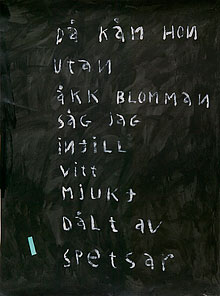 Då kåm HON
utan
åkk BLOMMAN
såg jag
intill
vitt
mjukt
DÅLt av
spetsar